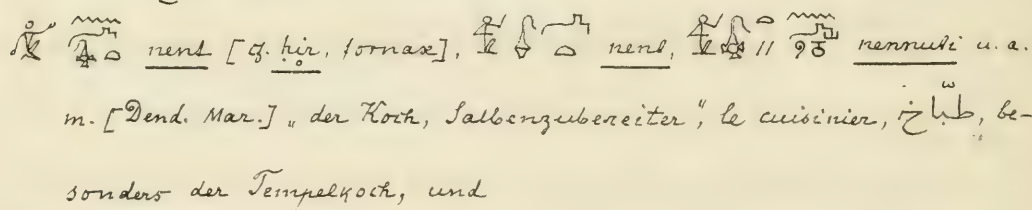 nent [cf. ḥir, fornax], nent, nennuti u. a.
m. [Dend. Mar.] „der Koch, Salbenzubereiter“, le cuisinier, طبّاخ, be-
sonders der Tempelkoch, und